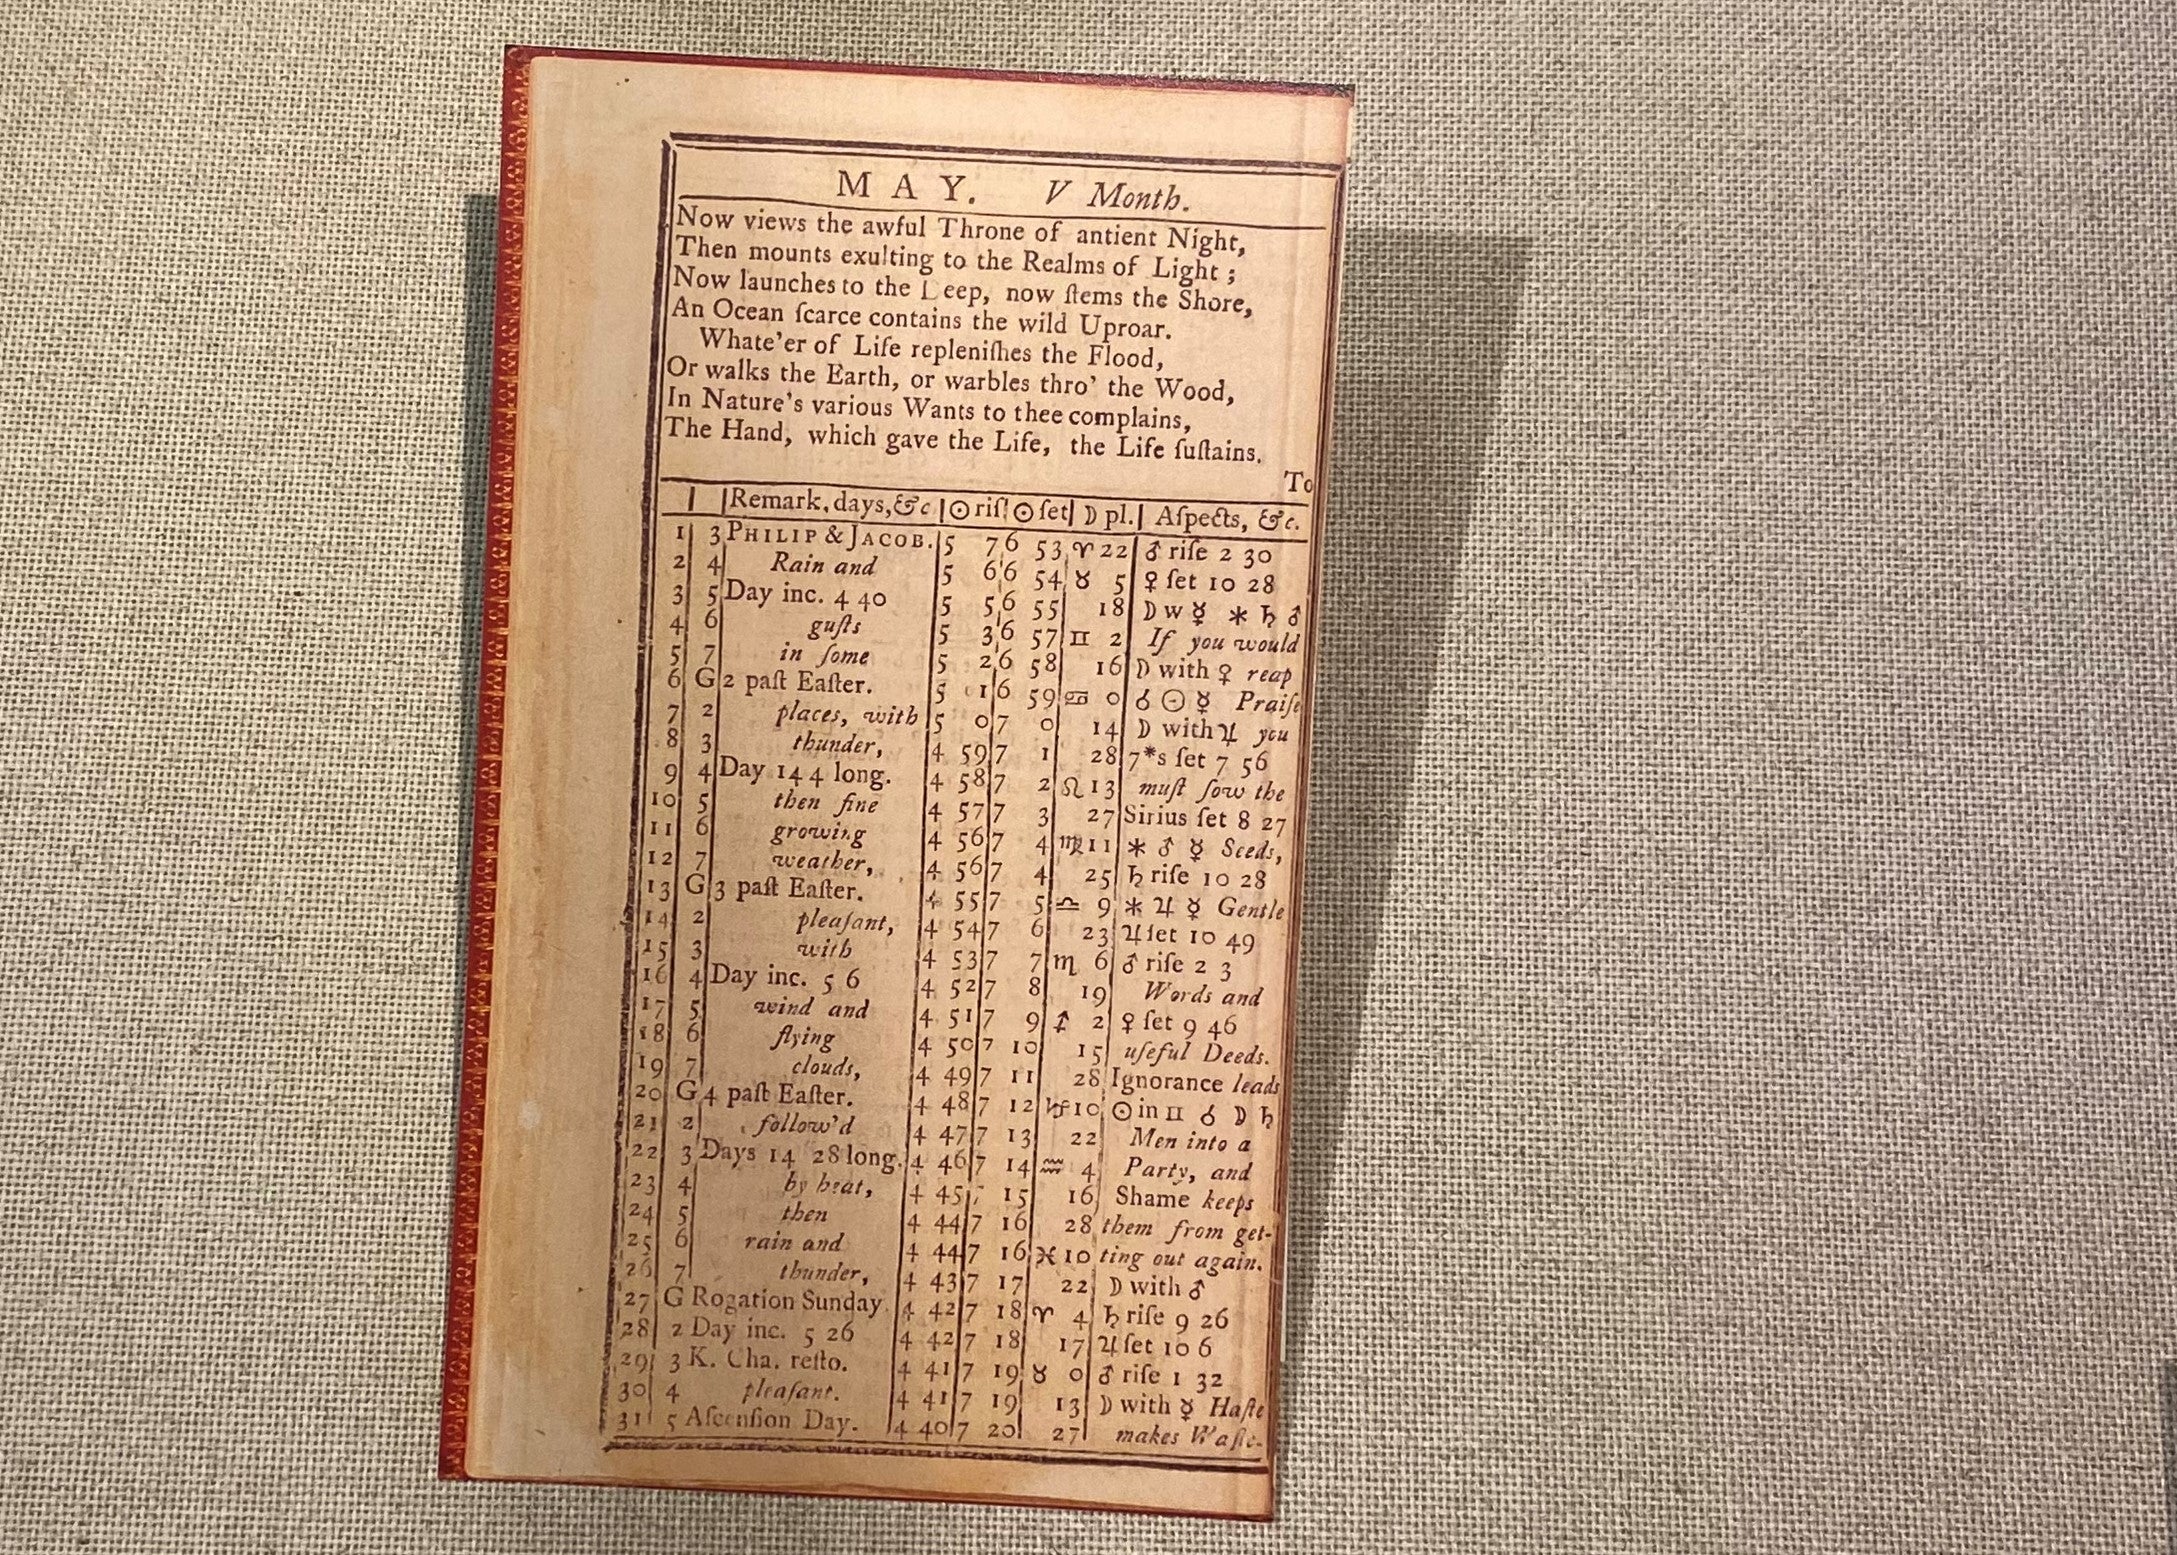 MAY. V Month.
Now views the awful Throne of antient Night,
Then mounts exulting to the Realms of Light ;
Now launches to the Deep, now ſtems the Shore,
An Ocean ſcarce contains the wild Uproar.
Whate'er of Life repleniſhes the Flood,
Or walks the Earth, or warbles thro' the Wood,
In Nature's various Wants to thee complains,
The Hand, which gave the Life, the Life ſuſtains.
To
Remark. days, &c ☉ riſ ☉ ſet ☽ pl. Aſpects, &c.
1 3 PHILIP & JACOB. 5 7 6 53 ♈ 22 ♂ riſe 2 30
2 4 Rain and 5 6 6 54 ♉ 5 ♀ ſet 10 28
3 5 Day inc. 4 40 5 5 6 55 18 ☽ w ☿ ⚹ ♄ ♂
4 6 guſts 5 3 6 57 ♊ 2 If you would
5 7 in ſome 5 2 6 58 16 ☽ with ♀ reap
6 G 2 paſt Eaſter. 5 1 6 59 ♋ 0 ☌ ☉ ☿ Praiſe
7 2 places, with 5 0 7 0 14 ☽ with ♃ you
8 3 thunder, 4 59 7 1 28 7*s ſet 7 56
9 4 Day 14 4 long. 4 58 7 2 ♌ 13 muſt ſow the
10 5 then fine 4 57 7 3 27 Sirius ſet 8 27
11 6 growing 4 56 7 4 ♍ 11 ⚹ ♂ ☿ Seeds,
12 7 weather, 4 56 7 4 25 ♄ riſe 10 28
13 G 3 paſt Eaſter. 4 55 7 5 ♎ 9 ⚹ ♃ ☿ Gentle
14 2 pleaſant, 4 54 7 6 23 ♃ ſet 10 49
15 3 with 4 53 7 7 ♏ 6 ♂ riſe 2 3
16 4 Day inc. 5 6 4 52 7 8 19 Words and
17 5 wind and 4 51 7 9 ♐ 2 ♀ ſet 9 46
18 6 flying 4 50 7 10 15 uſeful Deeds.
19 7 clouds, 4 49 7 11 28 Ignorance leads
20 G 4 paſt Eaſter. 4 48 7 12 ♑ 10 ☉ in ♊ ☌ ☽ ♄
21 2 follow'd 4 47 7 13 22 Men into a
22 3 Days 14 28 long. 4 46 7 14 ♒ 4 Party, and
23 4 by heat, 4 45 7 15 16 Shame keeps
24 5 then 4 44 7 16 28 them from get-
25 6 rain and 4 44 7 16 ♓ 10 ting out again.
26 7 thunder, 4 43 7 17 22 ☽ with ♂
27 G Rogation Sunday 4 42 7 18 ♈ 4 ♄ riſe 9 26
28 2 Day inc. 5 26 4 42 7 18 17 ♃ ſet 10 6
29 3 K. Cha. reſto. 4 41 7 19 ♉ 0 ♂ riſe 1 32
30 4 pleaſant. 4 41 7 19 13 ☽ with ☿ Haſte
31 5 Aſcenſion Day. 4 40 7 20 27 makes Waſte.